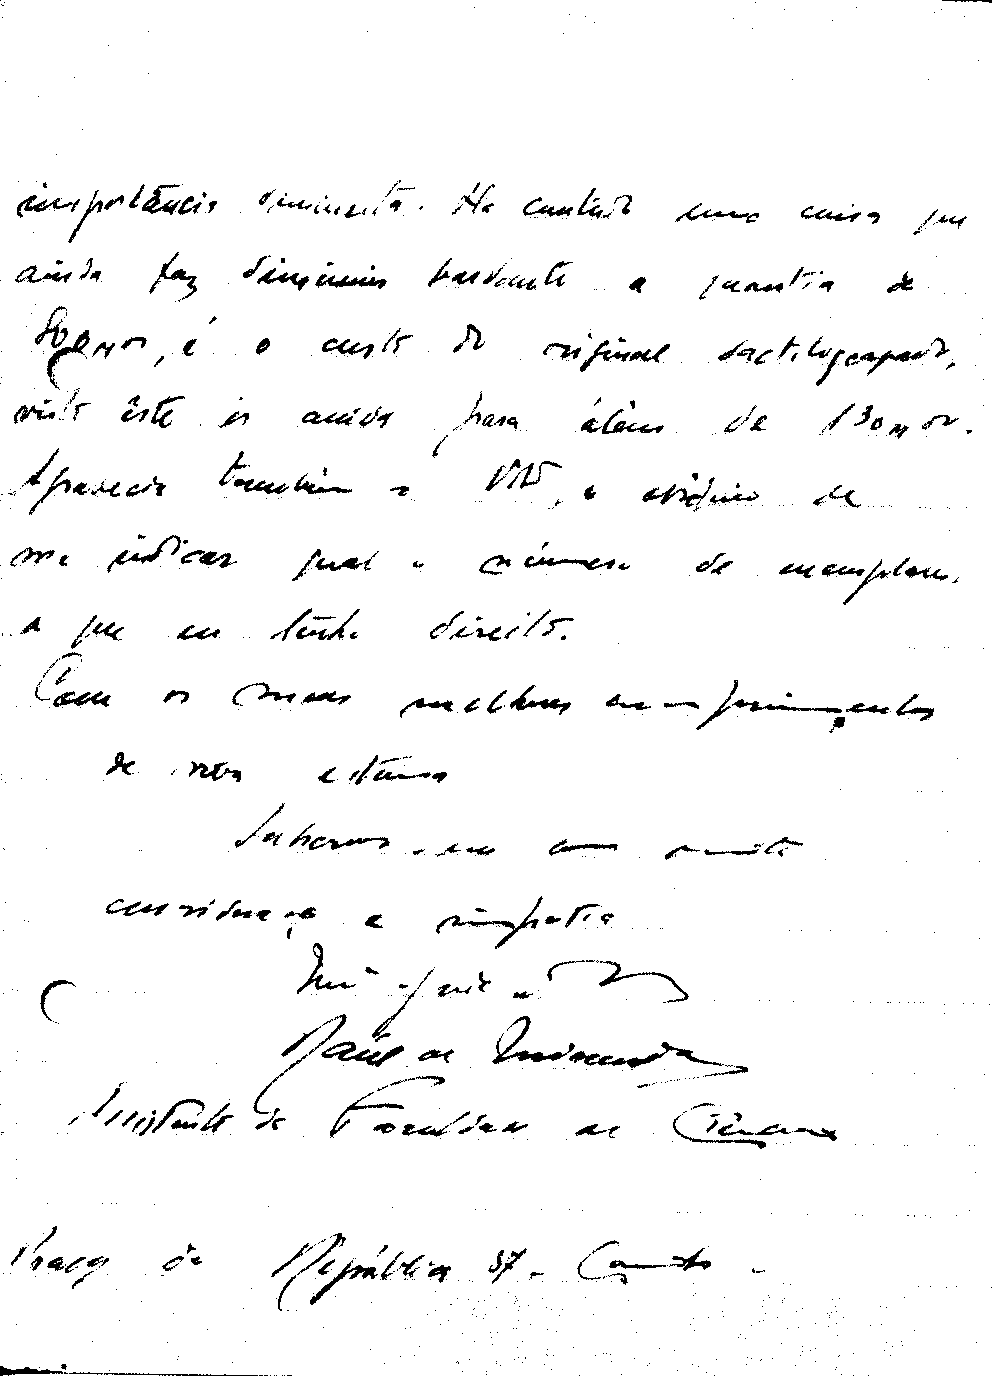 importância diminuta. Há contudo uma coisa que
ainda faz diminuir bastante a quantia de
é o custo do original dactilografado,
visto êste ir ainda para álem de 130$00.
Agradecia também a V. o obséquio de
me indicar qual o número de exemplares
a que eu tenho direito.
Com os meus melhores cumprimentos
de estima
Subscrevo-me com muita
consideração e simpatia
Raúl de Miranda
Assistente da Faculdade de Ciências
Praça da República 37 - Coimbra -